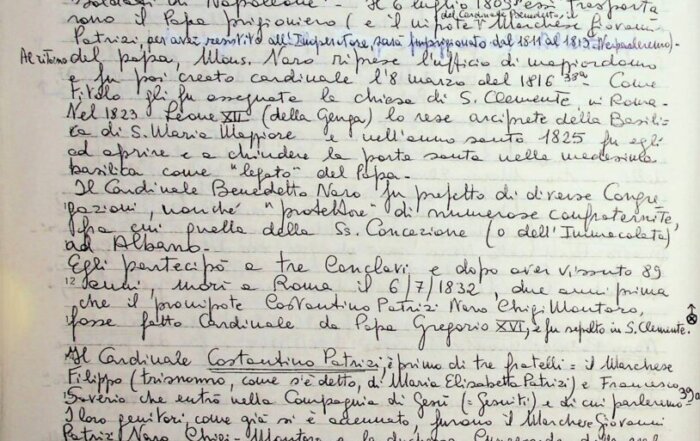 soldati di Napoleone". Il 6 luglio 1809 essi trasporta
rono il Papa prigioniero (e il nipote del Cardinale Benedetto il Marchese Giovanni
Patrizi, per aver resistito all'Imperatore, sarà imprigionato dal 1811 al 1813. Ne parleremo)-
Al ritorno del papa, Mons. Naro riprese l'ufficio di maggiordomo
e fu poi creato cardinale l'8 marzo del 1816 38a. Come
titolo gli fu assegnata la chiesa di S. Clemente, in Roma-
Nel 1823 Leone XII (della Genga) lo rese arciprete della Basili
ca di S. Maria Maggiore e nell'anno santo 1825 fu egli
ad aprire e a chiudere la porta santa nella medesima
basilica come "legato" del Papa-
Il Cardinale Benedetto Naro fu prefetto di diverse Congre
gazioni, nonché "protettore" di numerose confraternite,
fra cui quella della Ss. Concezione (o dell'Immacolata)
ad Albano-
Egli partecipò a tre Conclavi e dopo aver vissuto 89
12 anni, morì a Roma il 6/7/1832, due anni prima
che il pronipote Costantino Patrizi Naro Chigi Montoro,
fosse fatto Cardinale da Papa Gregorio XVI, e fu sepolto in S. Clemente.
Il Cardinale Costantino Patrizi, è primo di tre fratelli = il Marchese
Filippo (trisnonno, come s'è detto, di Maria Elisabetta Patrizi) e Francesco 39a
Saverio che entrò nella Compagnia di Gesù (= Gesuiti) e di cui parleremo-
I loro genitori, come già si è accennato, furono il Marchese Giovanni
Patrizi Naro Chigi-Montoro e la duchessa Cunegonda